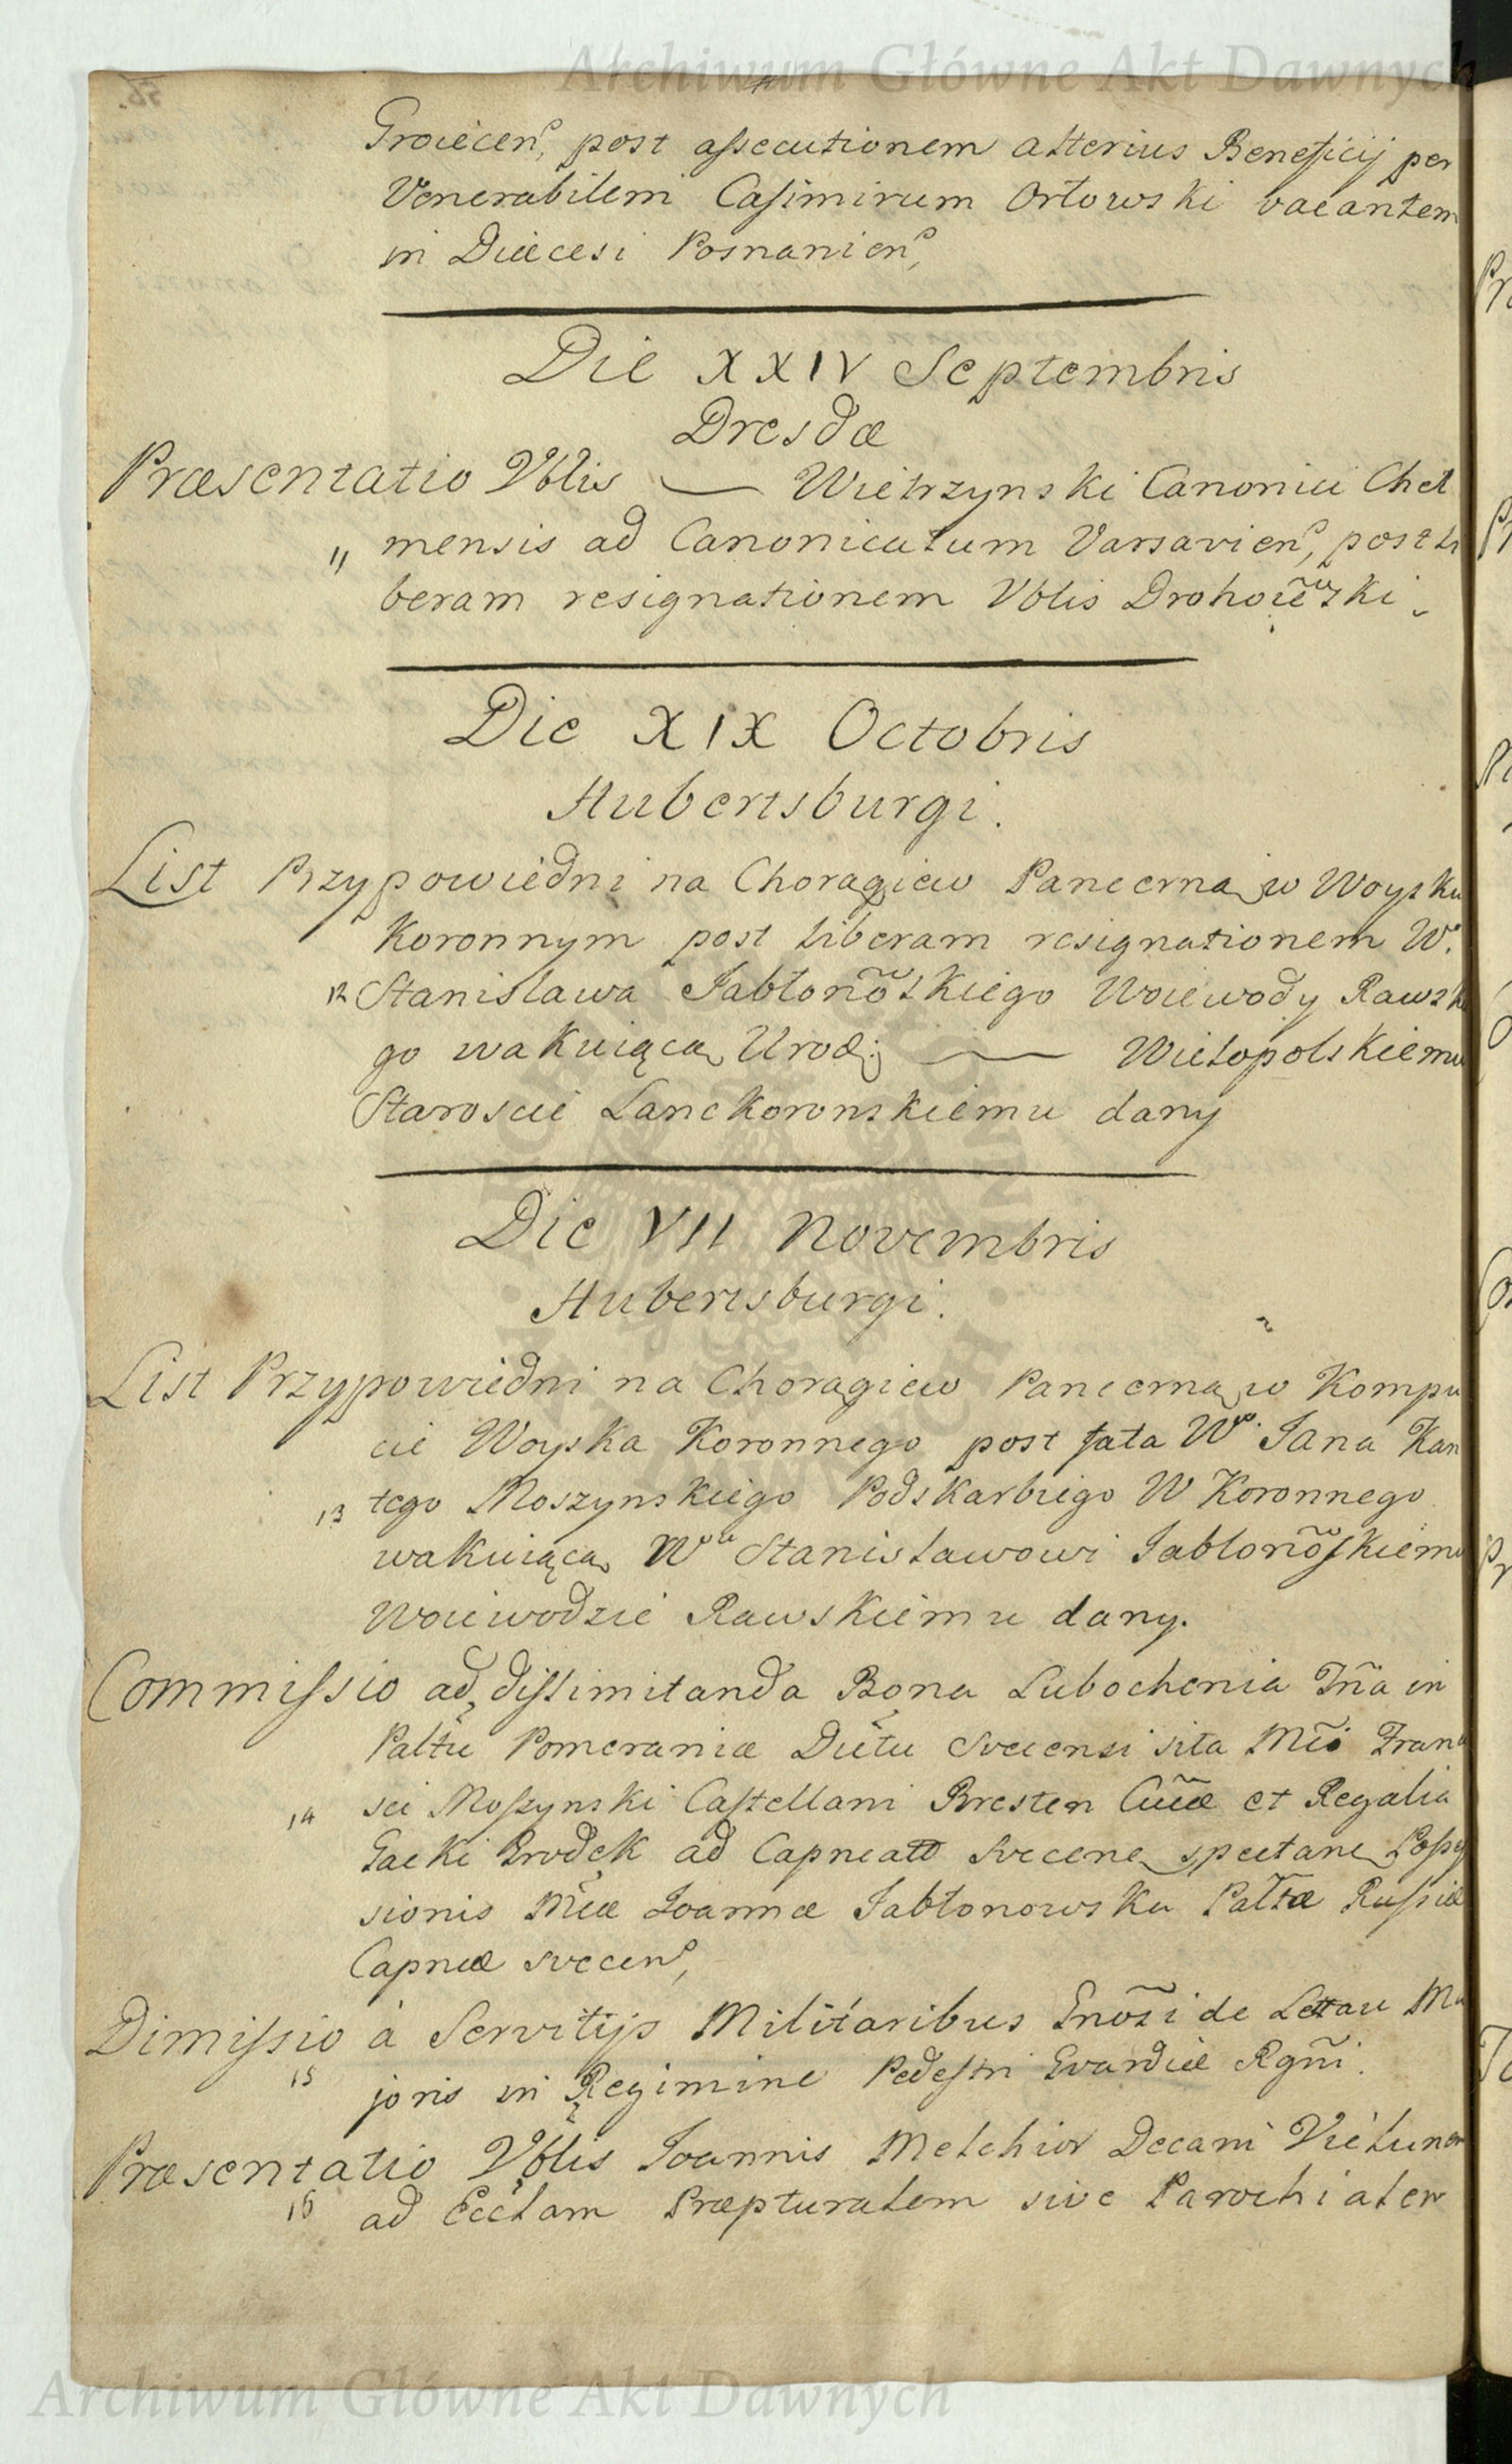 Archiwum Główne Akt Dawnych
Groiecen, post assecutionem alterius Beneficij per
Venerabilem Casimirum Orłowski vacantem
in Diæcesi Posnanien,
Die XXIV Septembris
Dresdæ
Præsentatio Vblis — Wietrzynski Canonici Cheł
11 mensis ad Canonicatum Varsavien, post li
beram resignationem Vblis
Die XIX Octobris
Hubertsburgi.
List Przypowiedni na Choragiew Pancerną w Woysku
Koronnym post liberam resignationem W.
12 Stanisława Jabłonõskiego Woiewody Rawskie
go wakuiącą Urod: — Wielopolskiemu
Staroscie Lanckoronskiemu dany
Die VII Novembris
Hubertsburgi.
List Przypowiedni na Choragiew Pancerną w Kompu
cie Woyska Koronnego post fata Wgo. Jana Kan
13 tego Moszynskiego Podskarbiego W Koronnego
wakuiącą Wu Stanisławowi Jabłonõskiemu
Woiewodzie Rawskiemu dany.
Commissio ad dislimitanda Bona Lubochenia in
Pomeraniæ Svecensi sita Franci
14 sci Moszynski Castellani Bresten et Regalia
ad spectan
sionis Joannæ Jabłonowska Russiæ
Capneæ Svecen,
Dimissio à Servitijs Militaribus de Lettau Ma
15 joris in Regimine Pedestri Gvardiæ Rgñi.
Præsentatio Vblis Joannis Melchior Decani
16 ad Eccłam Præpturalem sive Parochialem
Archiwum Główne Akt Dawnych